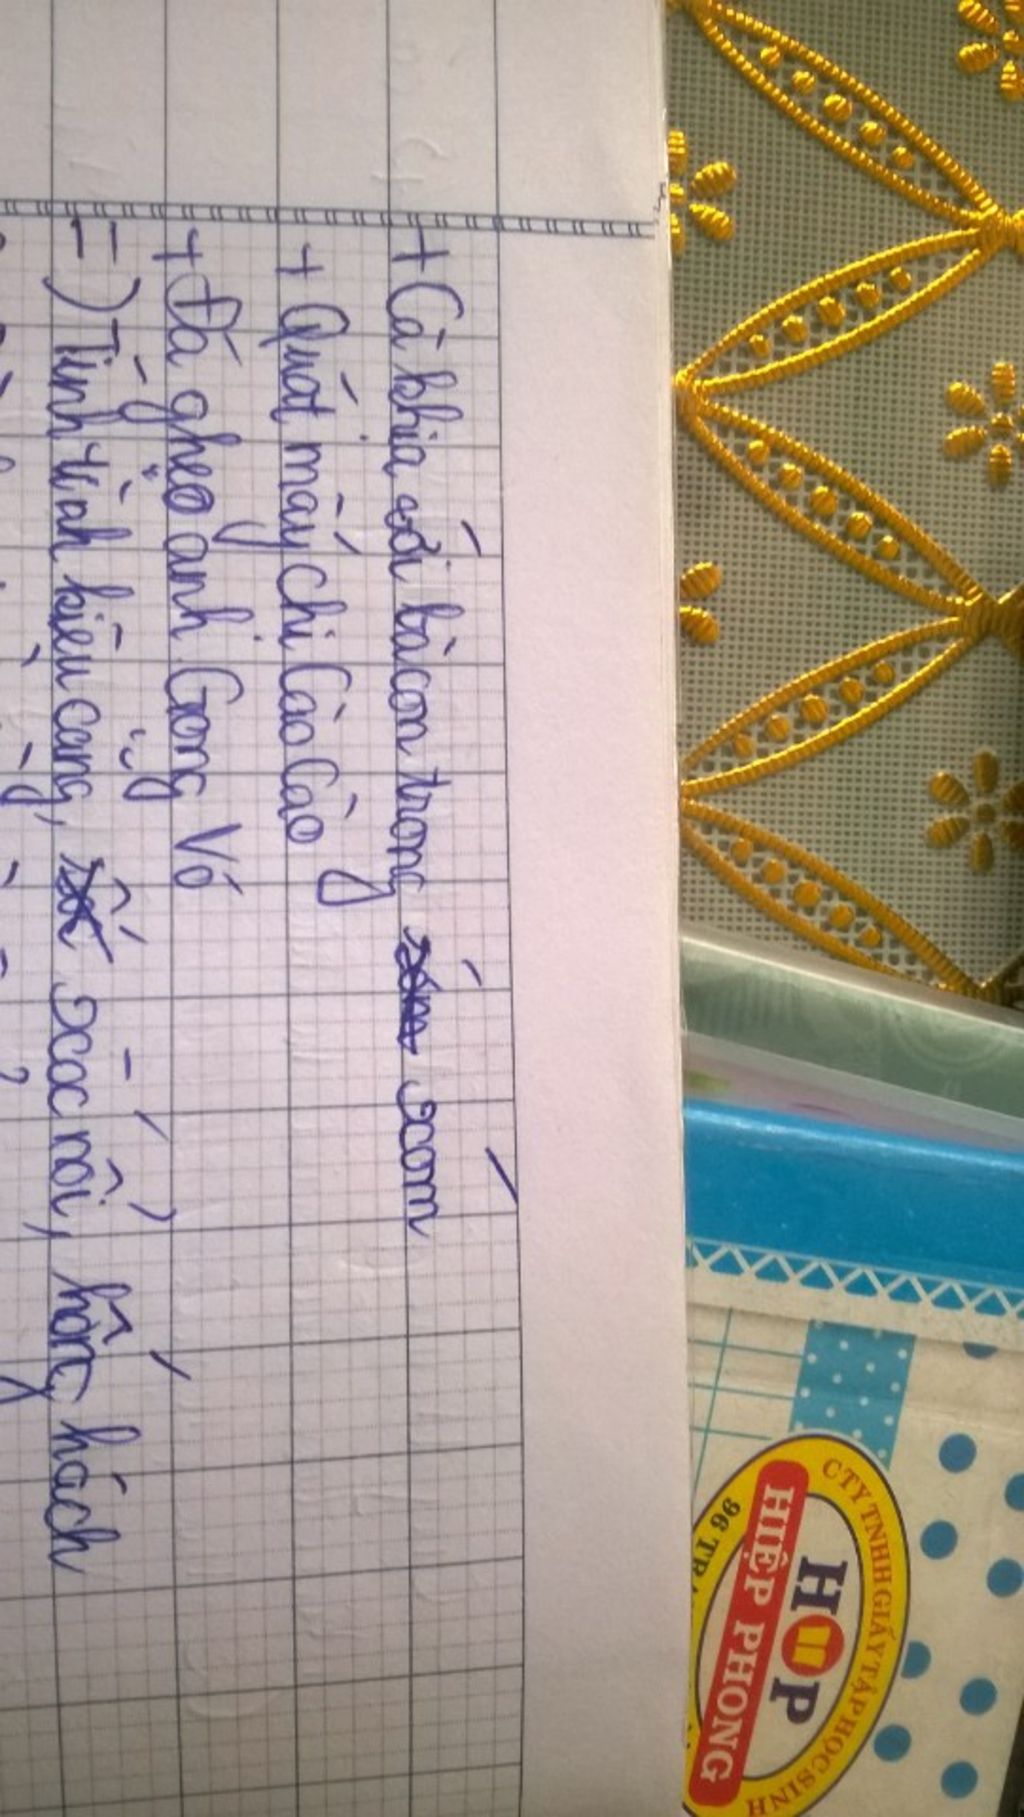 + Cà khịa với bà con trong xóm
+ Quát mấy chị Cào Cào
+ Đá ghẹo anh Gọng Vó
=) Tính tình kiêu căng, xốc nổi, hống hách
CTY TNHH GIẤY TẬP HỌC SINH
HIỆP PHONG
HOP